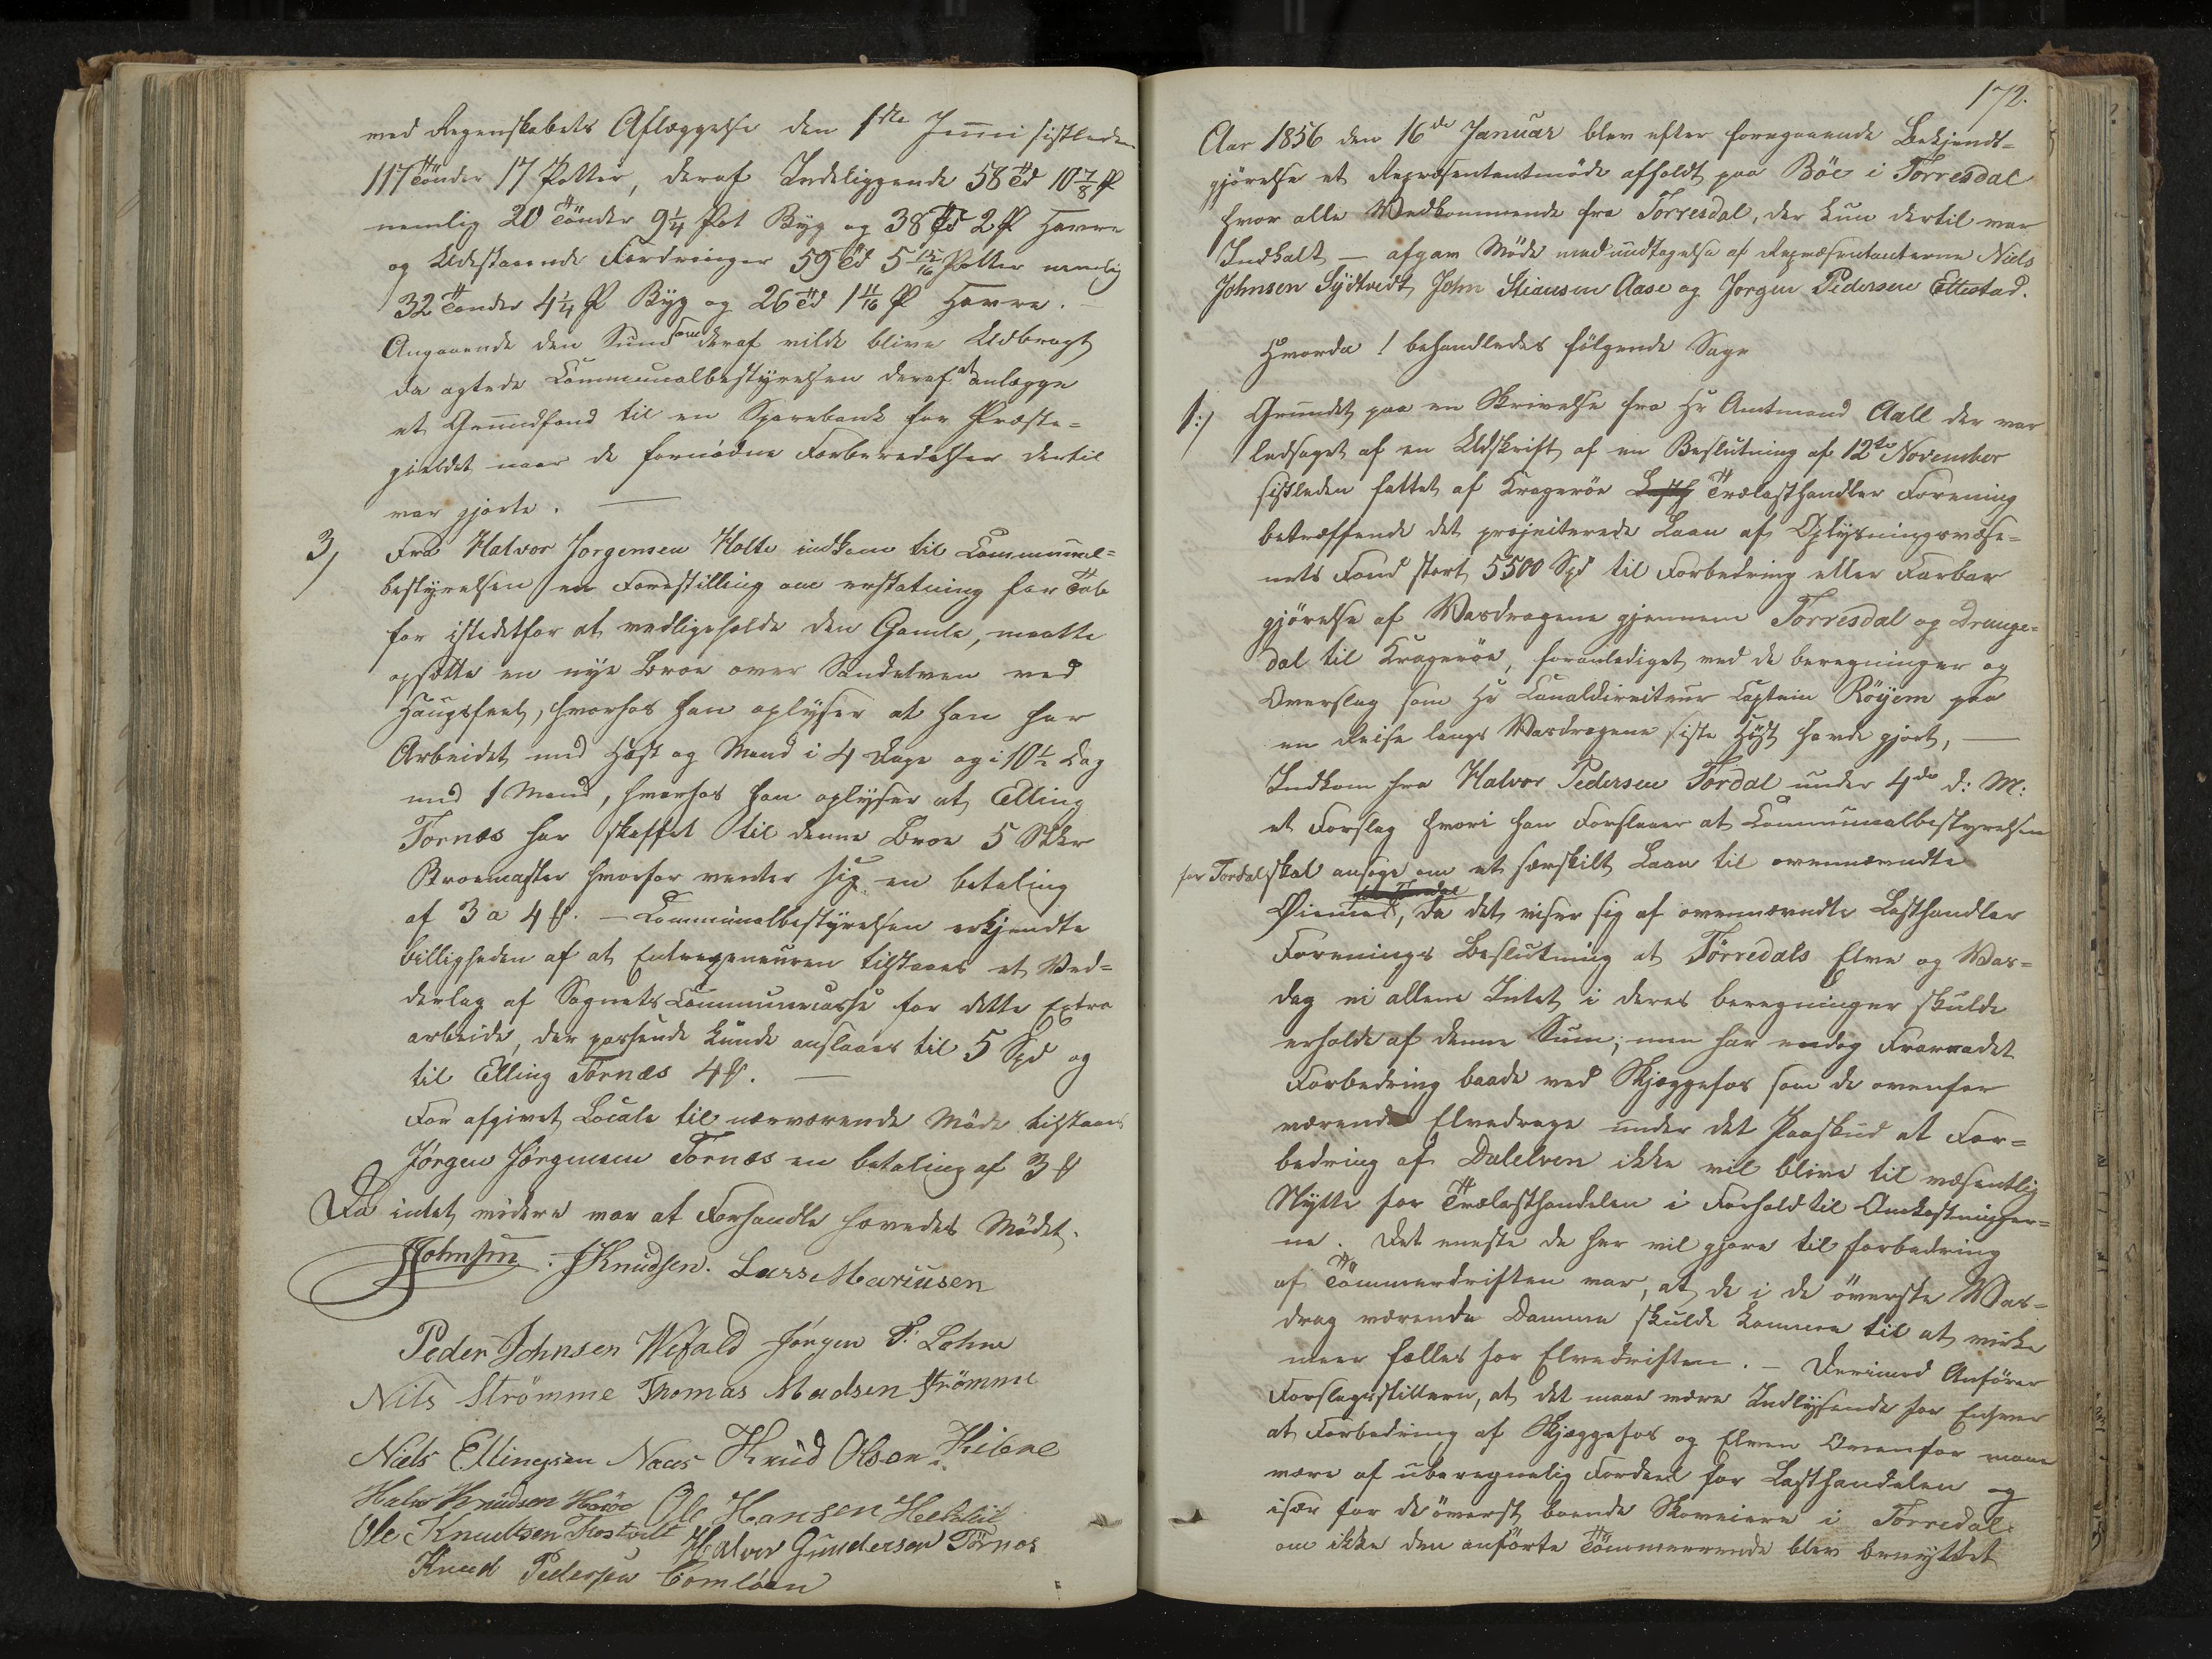 ved Regenskabets Aflæggelse den 1ste Juni sistleden
117 Tönder 17 Potter, deraf Indeliggende 58 Td 10 7/8 P
nemlig 20 Tönder 9 1/4 Pot Byg og 38 Td 2 P Havre
og Udestaaende Fordringer 59 Td 5 15/16 Potter nemlig
32 Tönder 4 1/4 P Byg og 26 Td 1 11/16 P Havre. –
Angaaende den Sum som deraf vilde blive Udbragt
da agtede Communalbestyrelsen deraf at anlægge
et Grundfond til en Sparebank for Præste=
gieldet naar de fornødne Forberedelser dertil
var gjorte. —
3, Fra Halvor Jorgensen Holte indkom til Communal=
bestyrelsen en Forestilling om erstatning for Tab
for istedetfor at vedligeholde den Gamle, maatte
opsætte en nye Broe over Sandelven ved
Haugsfeet, hvorhos han oplyser at han har
Arbeidet med Hæst og Mand i 4 Dage og i 10 1/2 Dag
med 1 Mand, hvorhos han oplyser at Elling
Tornæs har skaffet til denne Broe 5 Stkr
Broemaster hvorfor venter sig en betaling
af 3 a 4 ß. – Communalbestyrelsen erkjendte
billigheden af at Entrepeneuren tilstaaes et Ved=
derlag af Sognets Communecasse for dette Extra
arbeide, der passende kunde anslaaes til 5 Spd og
til Elling Tornæs 4 ß. —
For afgivet Locale til nærværende Möde tilstaaes
Jörgen Jörgensen Tornæs en betaling af 3 ß
Da intet videre var at Forhandle hævedes Mödet.
JJohnsen. JKnudsen. Lars Mariusen
Peder Johnsen Wefald Jörgen T. Lohne
Nils Strömme Thomas Madsen Strömme
Niels Ellingsen Naas Knud Olsen Kilene
Halvor Knudsen Ole Hansen
Ole Knudtsen Halvor Gunderson Törnes
Knud Pedersen
172.
Aar 1856 den 16de Januar blev efter foregaaende Bekjendt=
gjörelse et Repræsentantmöde afholdt paa Böe i Törresdal
hvor alle Vedkommende fra Törresdal, der kun dertil var
Indkalt – afgav Möde med undtagelse af Repræsentanterne Niels
Johnsen Sydtvedt, John Stiansen Aase og Jorgen Pedersen Ettestad.
Hvorda! behandledes fölgende Sager
1:/ Grundet paa en Skrivelse fra Hr Amtmand Aall der var
ledsaget af en Udskrift af en Beslutning af 12te November
sistleden fattet af Kragerøe Trælasthandler Forening
betræffende det projecterede Laan af Oplysningsvæse=
nets Fond stort 5500 Spd til Forbedring eller Farbar
gjörelse af Vasdragene gjennem Törresdal og Drange=
dal til Kragerøe, foranlediget ved de beregninger og
Overslag som Hr Canaldirecteur Captein Röyem paa
en Reise langs Vasdragene siste Höst havde gjort, —
Indkom fra Halvor Pedersen Tördal under 4de d: M:
et Forslag hvori han Forslaaer at Communalbestyrelsen
for Tordal skal ansøge om et særskilt Laan til ovennævndte
Öiemed, da det viser sig af ovennævndte Lasthandler
Forenings Beslutning at Törredals Elve og Vas=
drag ei allene Intet i deres beregninger skulde
erholde af denne Sum; men har endog Fraraadet
Forbedring baade ved Skjæggefos som de ovenfor
værende Elvedrage under det Paaskud at For=
bedring af Dalelven ikke vil blive til væsentlig
Nytte for Trælasthandelen i Forhold til Omkostninger=
ne. Det eneste de her vil gjøre til forbedring
af Tömmerdriften var, at de i de överste Vas=
drag værende Damme skulde komme til at virke
meer fælles for Elvedriften. – Derimod Anförer
Forslagsstilleren, at det maae være Indlysende for Enhver
at Forbedring af Skjæggefos og Elven Ovenfor maae
være af uberegnelig Fordeel for Lasthandelen og
især for de överst boende Skoveiere i Törredal
om ikke den anförte Tömmerrende blev benyttet